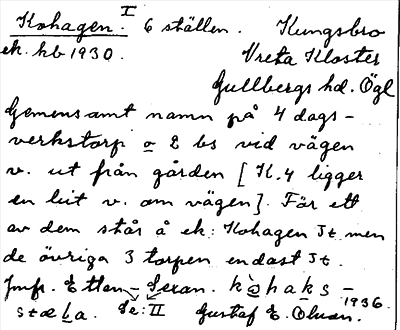 Kohagen. I 6 ställen. Kungsbro
ek. kb 1930. Vreta Kloster
Gullbergs hd. Ögl
Gemensamt namn på 4 dags-
verkstorp o 2 bs vid vägen
v. ut från gården [K.4 ligger
en bit v. om vägen]. För ett
av dem står å ek: Kohagen It. men
de övriga 3 torpen endast It.
Jmfr. Ettan - kòhaks -
stæLa. Se: II Gustaf E. Olsson. 1936.